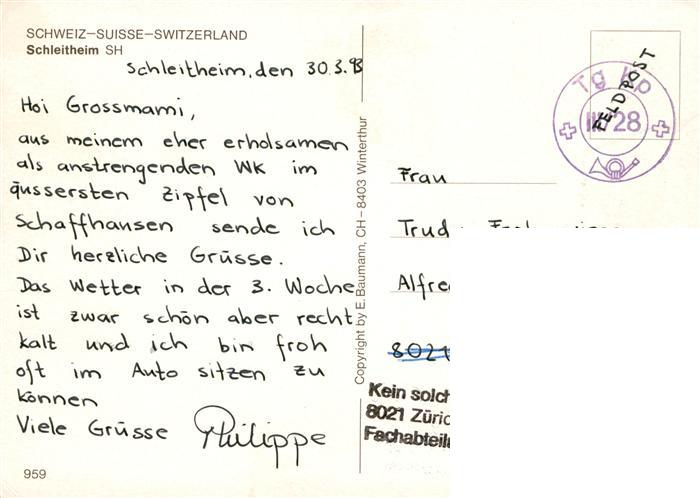 SCHWEIZ–SUISSE–SWITZERLAND
Schleitheim SH
Schleitheim, den 30.3.93
Hoi Grossmami,
aus meinem eher erholsamen
als anstrengenden WK im
äussersten Zipfel von
Schaffhausen sende ich
Dir herzliche Grüsse.
Das Wetter in der 3. Woche
ist zwar schön aber recht
kalt und ich bin froh
oft im Auto sitzen zu
können
Viele Grüsse Philippe
959
Copyright by E. Baumann, CH – 8403 Winterthur
Tg Kp
III/28
FELDPOST
Frau
8021
Kein
8021